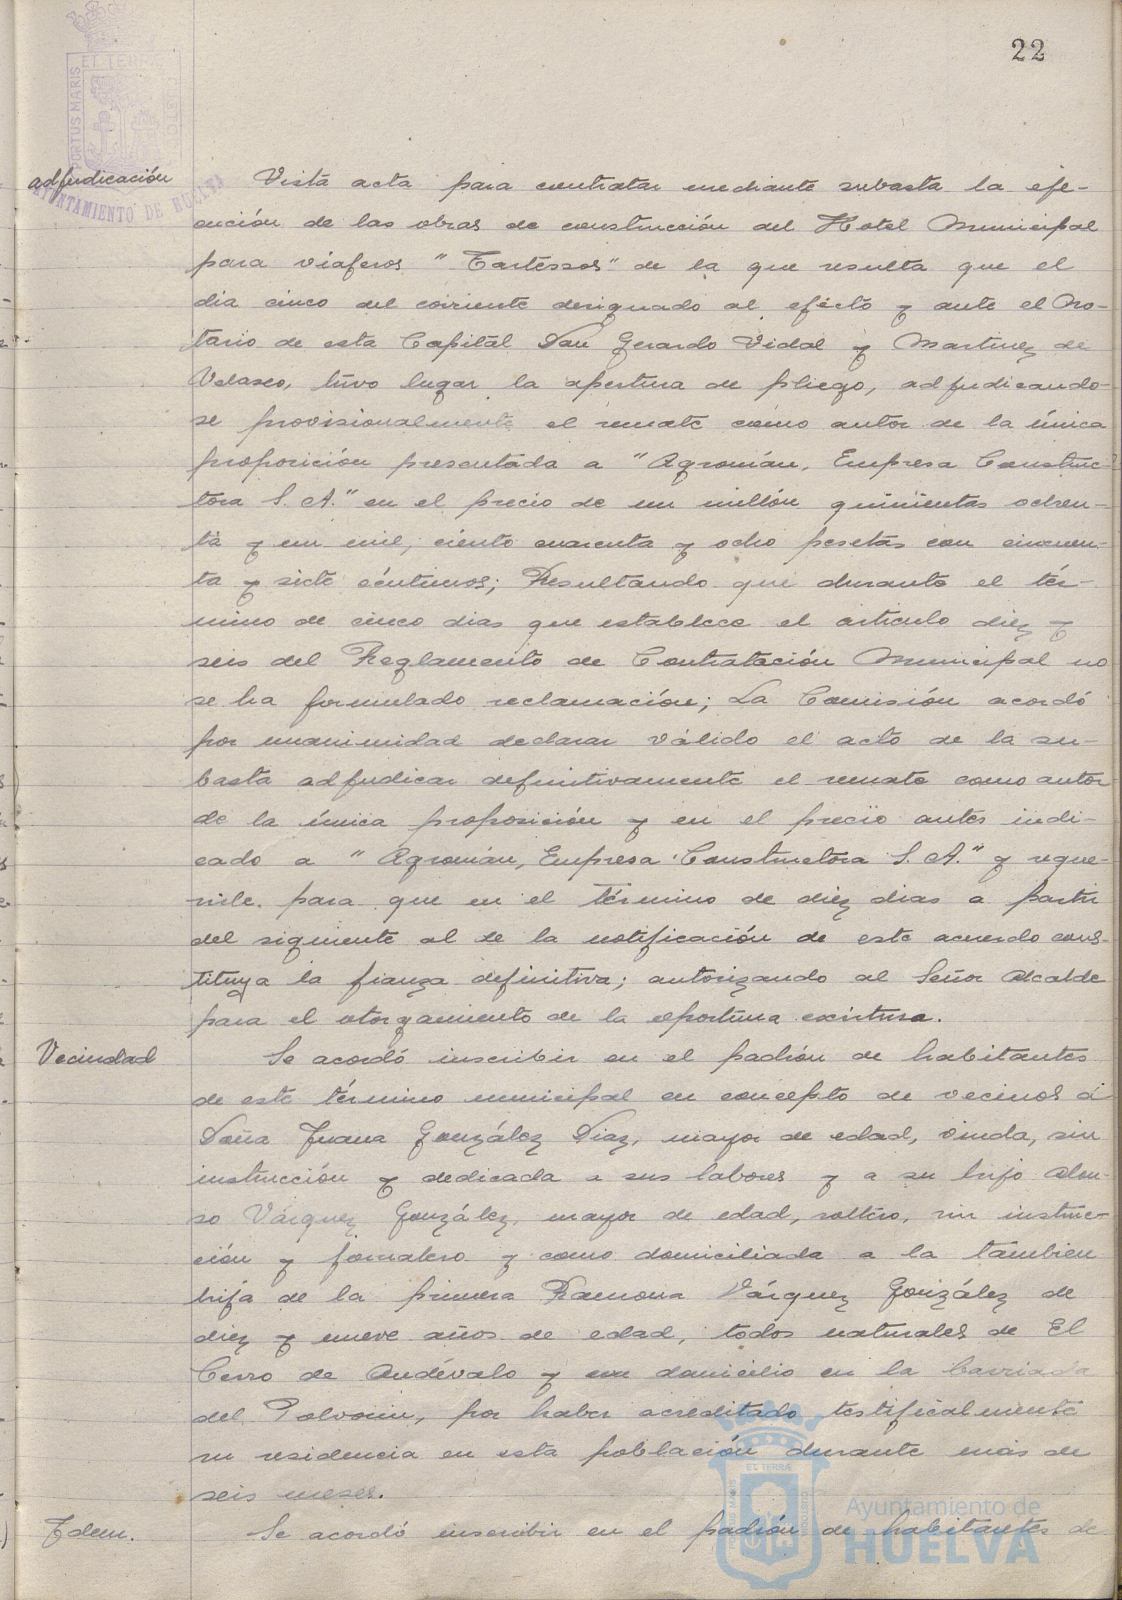 22
PORTUS MARIS
ET TERRÆ
AYUNTAMIENTO DE HUELVA
adjudicación
Vista acta para contratar mediante subasta la eje-
cución de las obras de construcción del Hotel Municipal
para viajeros "Tartessos" de la que resulta que el
dia cinco del corriente designado al efecto y ante el No-
tario de esta Capital Don Gerardo Vidal y Martinez de
Velasco, tuvo lugar la apertura de pliego, adjudicando-
se provisionalmente el remate como autor de la única
proposición presentada a "Agromán, Empresa Construc-
tora S. A." en el precio de un millón quinientas ochen-
ta y un mil, ciento cuarenta y ocho pesetas con cincuen-
ta y siete céntimos; Resultando que durante el tér-
mino de cinco dias que establece el articulo diez y
seis del Reglamento de Contratación Municipal no
se ha formulado reclamación; La Comisión acordó
por unanimidad declarar válido el acto de la su-
basta adjudicar definitivamente el remate como autor
de la única proposición y en el precio antes indi-
cado a "Agromán, Empresa Constructora S. A." y reque-
rirle para que en el término de diez dias a partir
del siguiente al de la notificación de este acuerdo cons-
tituya la fianza definitiva; autorizando al Señor Alcalde
para el otorgamiento de la oportuna escritura.
Vecindad
Se acordó inscribir en el padrón de habitantes
de este término municipal en concepto de vecinos á
Doña Juana González Diaz, mayor de edad, viuda, sin
instrucción y dedicada a sus labores y a su hijo Alon-
so Vázquez González, mayor de edad, soltero, sin instruc-
ción y jornalero y como domiciliada a la tambien
hija de la primera Ramona Vázquez González de
diez y nueve años de edad, todos naturales de El
Cerro de Andévalo y con domicilio en la barriada
del Polvorin, por haber acreditado testificalmente
su residencia en esta población durante más de
seis meses.
Idem.
Se acordó inscribir en el padrón de habitantes de
Ayuntamiento de
HUELVA